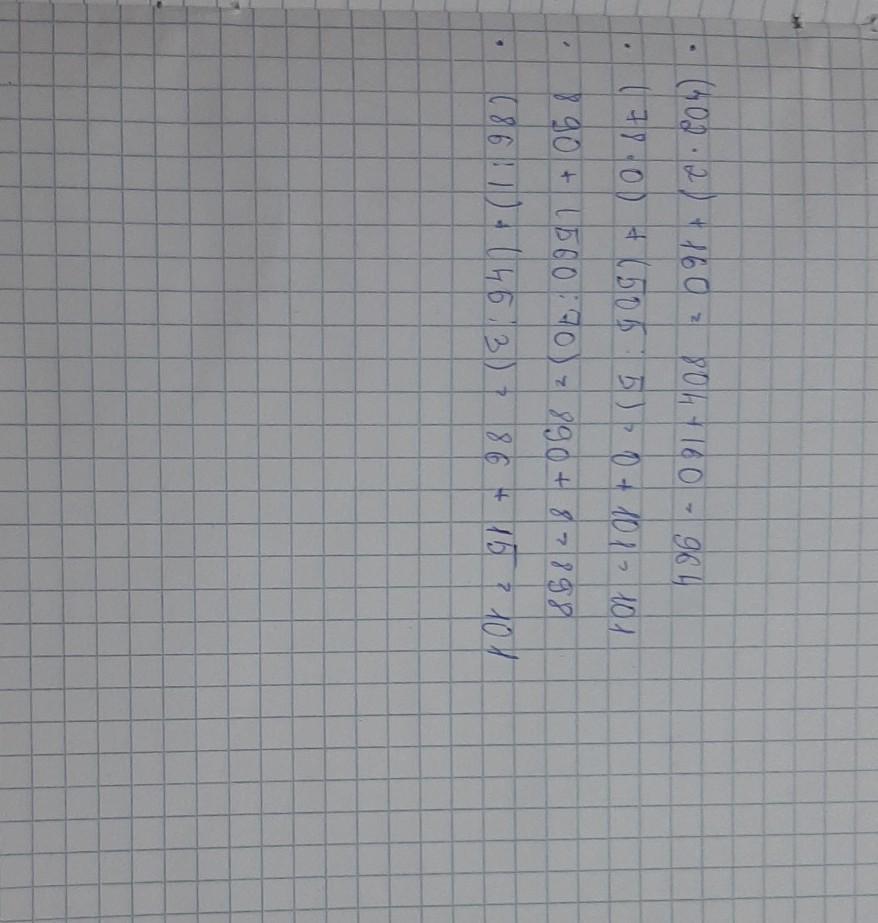 • (402 · 2) + 160 = 804 + 160 = 964
• (78 · 0) + (505 : 5) = 0 + 101 = 101
• 890 + (560 : 70) = 890 + 8 = 898
• (86 : 1) + (45 : 3) = 86 + 15 = 101